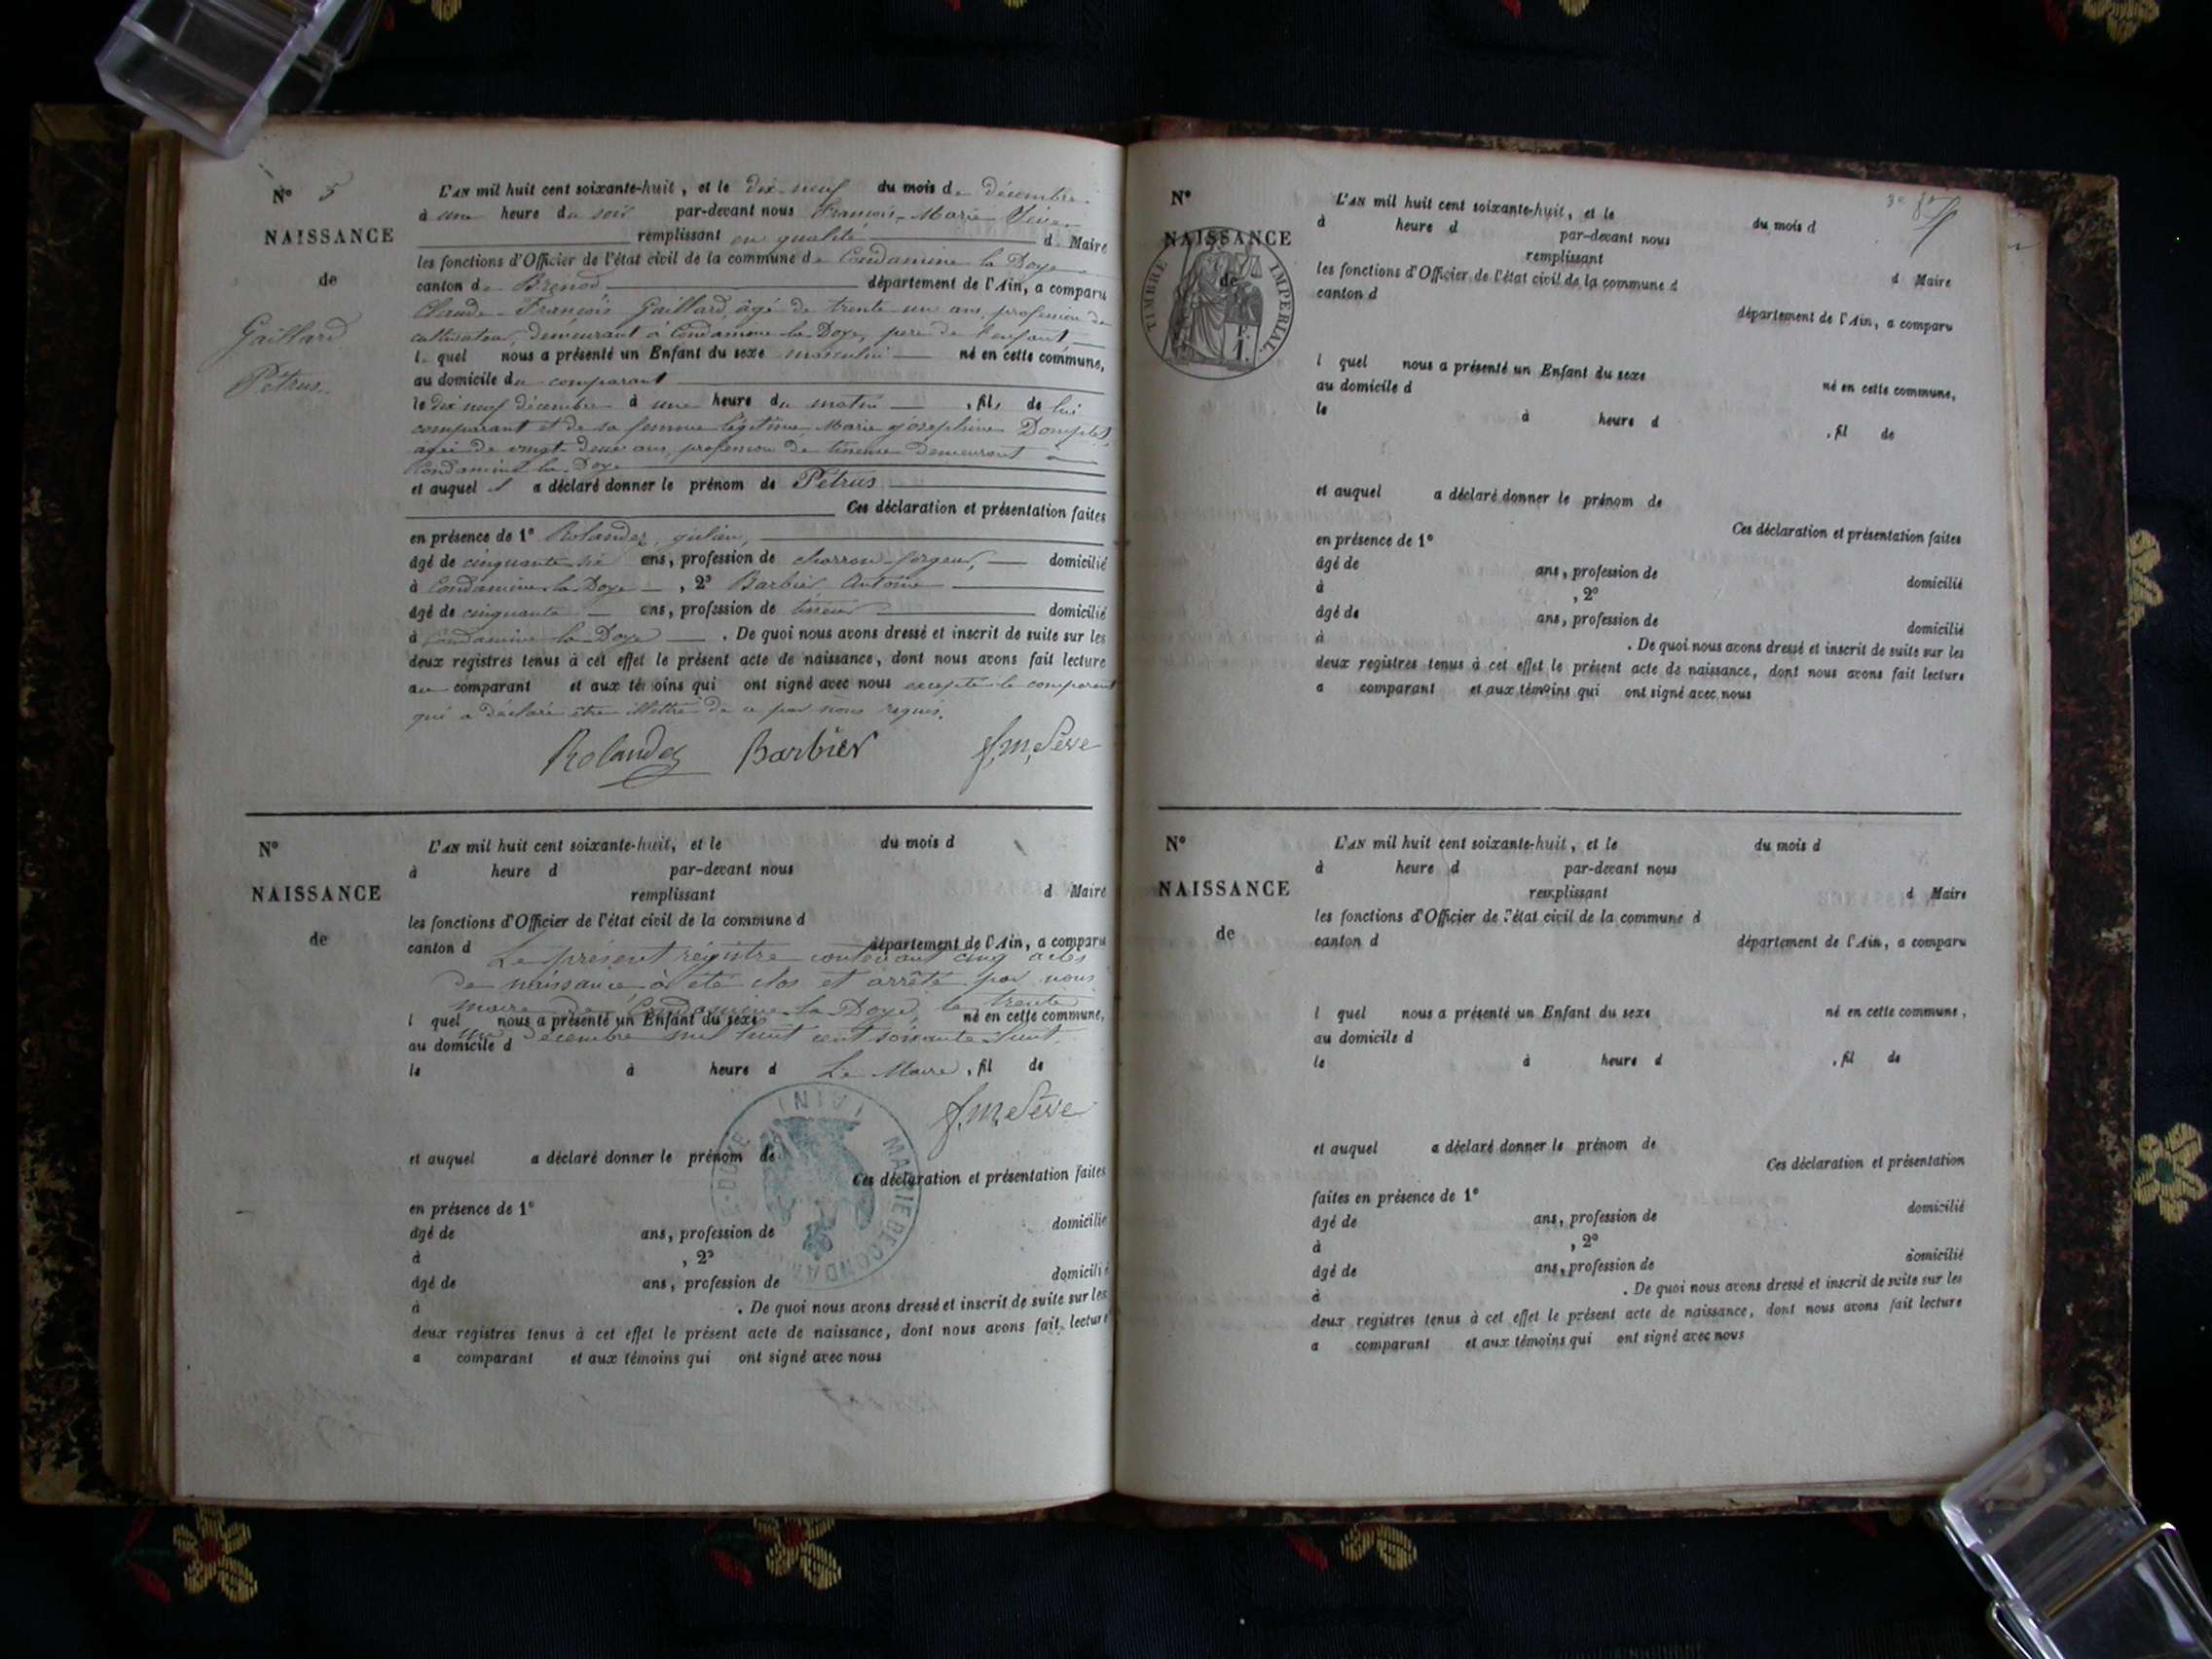 N° 5
NAISSANCE
de
Gaillard
Pétrus
L'AN mil huit cent soixante-huit, et le dix-neuf du mois de décembre
à une heure du soir par-devant nous François-Marie Sève
remplissant en qualité d Maire
les fonctions d'Officier de l'état civil de la commune de Condamine la Doye
canton de Brénod département de l'Ain, a comparu
Claude-François Gaillard, âgé de trente un ans, profession de
cultivateur, demeurant à Condamine la Doye, père de l'enfant
lequel nous a présenté un Enfant du sexe masculin né en cette commune,
au domicile du comparant
le dix neuf décembre à une heure du matin, fils de lui
comparant et de sa femme légitime Marie Joséphine
âgée de vingt-deux ans, profession de tisseuse demeurant à
Condamine la Doye
et auquel il a déclaré donner le prénom de Pétrus
Ces déclaration et présentation faites
en présence de 1° Rolandez, julien,
âgé de cinquante six ans, profession de charron-forgeur, domicilié
à Condamine la Doye, 2° Barbier Antoine
âgé de cinquante ans, profession de tisseur domicilié
à Condamine la Doye. De quoi nous avons dressé et inscrit de suite sur les
deux registres tenus à cet effet le présent acte de naissance, dont nous avons fait lecture
au comparant et aux témoins qui ont signé avec nous excepté le comparant
qui a déclaré être illettré de ce par nous requis.
Rolandez Barbier f.m. Sève
N°
NAISSANCE
de
L'AN mil huit cent soixante-huit, et le du mois d
à heure d par-devant nous
remplissant d Maire
les fonctions d'Officier de l'état civil de la commune d
canton d département de l'Ain, a comparu
Le présent régistre contenant cinq actes
de naissance a été clos et arrêté par nous
maire de Condamine la Doye, le trente
l quel nous a présenté un Enfant du sexe né en cette commune,
un décembre mil huit cent soixante huit.
au domicile d
le à heure d , fil de
Le Maire
f.m. Sève
MAIRIE DE CONDAMINE-LA-DOYE (AIN)
et auquel a déclaré donner le prénom de
Ces déclaration et présentation faites
en présence de 1°
âgé de ans, profession de domicilié
à , 2°
âgé de ans, profession de domicilié
à . De quoi nous avons dressé et inscrit de suite sur les
deux registres tenus à cet effet le présent acte de naissance, dont nous avons fait lecture
a comparant et aux témoins qui ont signé avec nous
N°
NAISSANCE
de
TIMBRE IMPERIAL.
L'AN mil huit cent soixante-huit, et le du mois d
à heure d par-devant nous
remplissant d Maire
les fonctions d'Officier de l'état civil de la commune d
canton d département de l'Ain, a comparu
l quel nous a présenté un Enfant du sexe né en cette commune,
au domicile d
le à heure d , fil de
et auquel a déclaré donner le prénom de
Ces déclaration et présentation faites
en présence de 1°
âgé de ans, profession de domicilié
à , 2°
âgé de ans, profession de domicilié
à . De quoi nous avons dressé et inscrit de suite sur les
deux registres tenus à cet effet le présent acte de naissance, dont nous avons fait lecture
a comparant et aux témoins qui ont signé avec nous
N°
NAISSANCE
de
L'AN mil huit cent soixante-huit, et le du mois d
à heure d par-devant nous
remplissant d Maire
les fonctions d'Officier de l'état civil de la commune d
canton d département de l'Ain, a comparu
l quel nous a présenté un Enfant du sexe né en cette commune,
au domicile d
le à heure d , fil de
et auquel a déclaré donner le prénom de
Ces déclaration et présentation
faites en présence de 1°
âgé de ans, profession de domicilié
à , 2°
âgé de ans, profession de domicilié
à . De quoi nous avons dressé et inscrit de suite sur les
deux registres tenus à cet effet le présent acte de naissance, dont nous avons fait lecture
a comparant et aux témoins qui ont signé avec nous